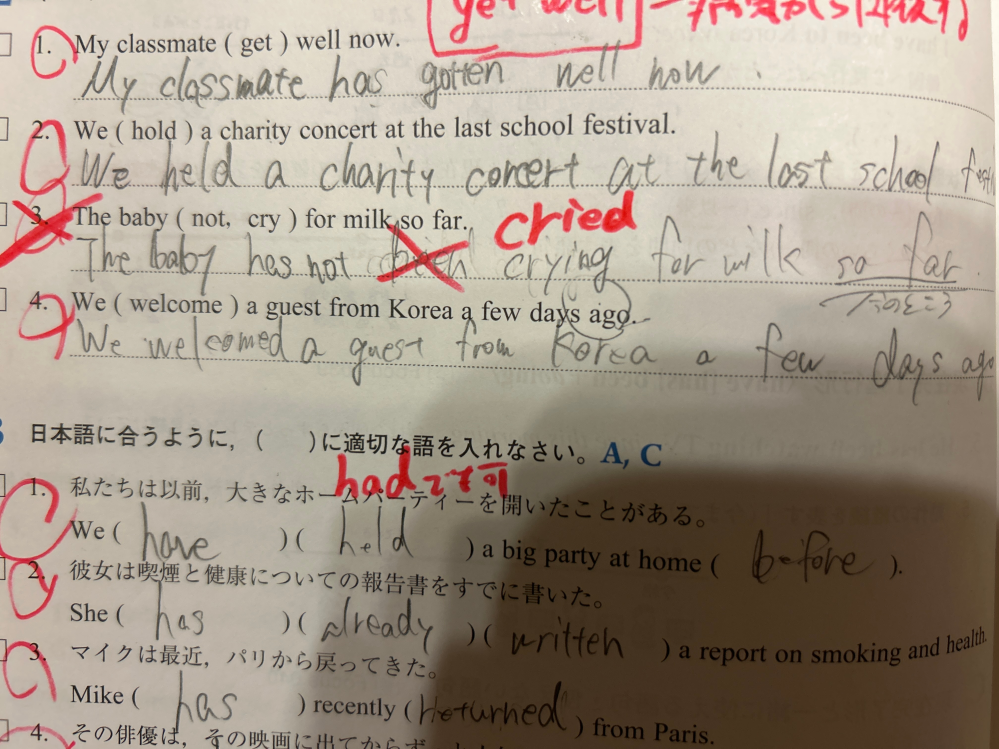 get well
1. My classmate ( get ) well now.
My classmate has gotten well now.
2. We ( hold ) a charity concert at the last school festival.
We held a charity concert at the last school
3. The baby ( not, cry ) for milk so far.
cried
The baby has not been crying for milk so far.
今のところ
4. We ( welcome ) a guest from Korea a few days ago.
We welcomed a guest from Korea a few days ago
日本語に合うように，(　　)に適切な語を入れなさい。 A, C
hadでも可
1. 私たちは以前，大きなホームパーティーを開いたことがある。
We ( have )( held ) a big party at home ( before ).
2. 彼女は喫煙と健康についての報告書をすでに書いた。
She ( has )( already )( written ) a report on smoking and health.
3. マイクは最近，パリから戻ってきた。
Mike ( has ) recently ( returned ) from Paris.
4. その俳優は，その映画に出てからずっと